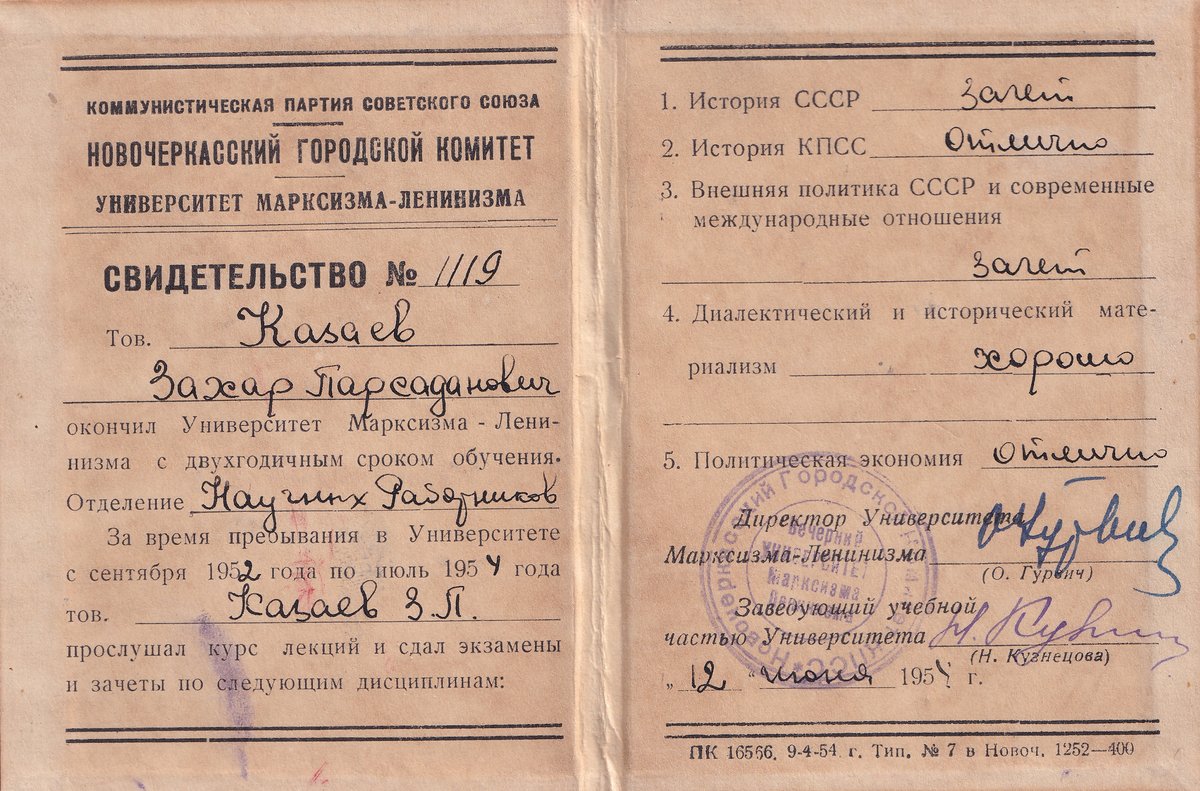 КОММУНИСТИЧЕСКАЯ ПАРТИЯ СОВЕТСКОГО СОЮЗА
НОВОЧЕРКАССКИЙ ГОРОДСКОЙ КОМИТЕТ
УНИВЕРСИТЕТ МАРКСИЗМА-ЛЕНИНИЗМА
СВИДЕТЕЛЬСТВО № 1119
Тов. Казаев
Захар Парсаданович
окончил Университет Марксизма - Лени-
низма с двухгодичным сроком обучения.
Отделение Научных Работников
За время пребывания в Университете
с сентября 1952 года по июль 1954 года
тов. Казаев З.П.
прослушал курс лекций и сдал экзамены
и зачеты по следующим дисциплинам:
1. История СССР зачет
2. История КПСС Отлично
3. Внешняя политика СССР и современные
международные отношения
зачет
4. Диалектический и исторический мате-
риализм хорошо
5. Политическая экономия Отлично
Директор Университета
Марксизма-Ленинизма
(О. Гурвич)
Заведующий учебной
частью Университета
(Н. Кузнецова)
„12" июня 1954 г.
Новочеркасский Городской КПСС
Вечерний
университет
Марксизма
ленинизма
ПК 16566. 9-4-54 г. Тип. № 7 в Новоч. 1252—400